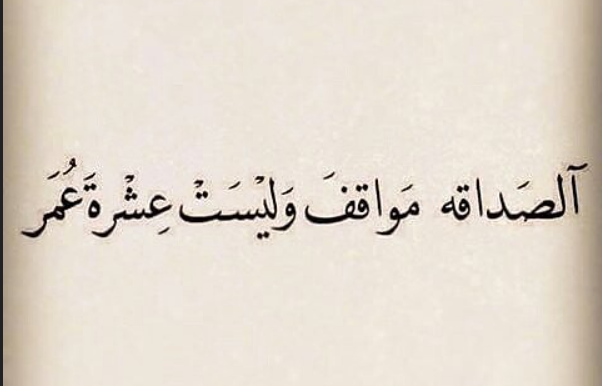 آلصَداقه مَواقفَ وَليْسَتْ عِشْرةَ عُمَر